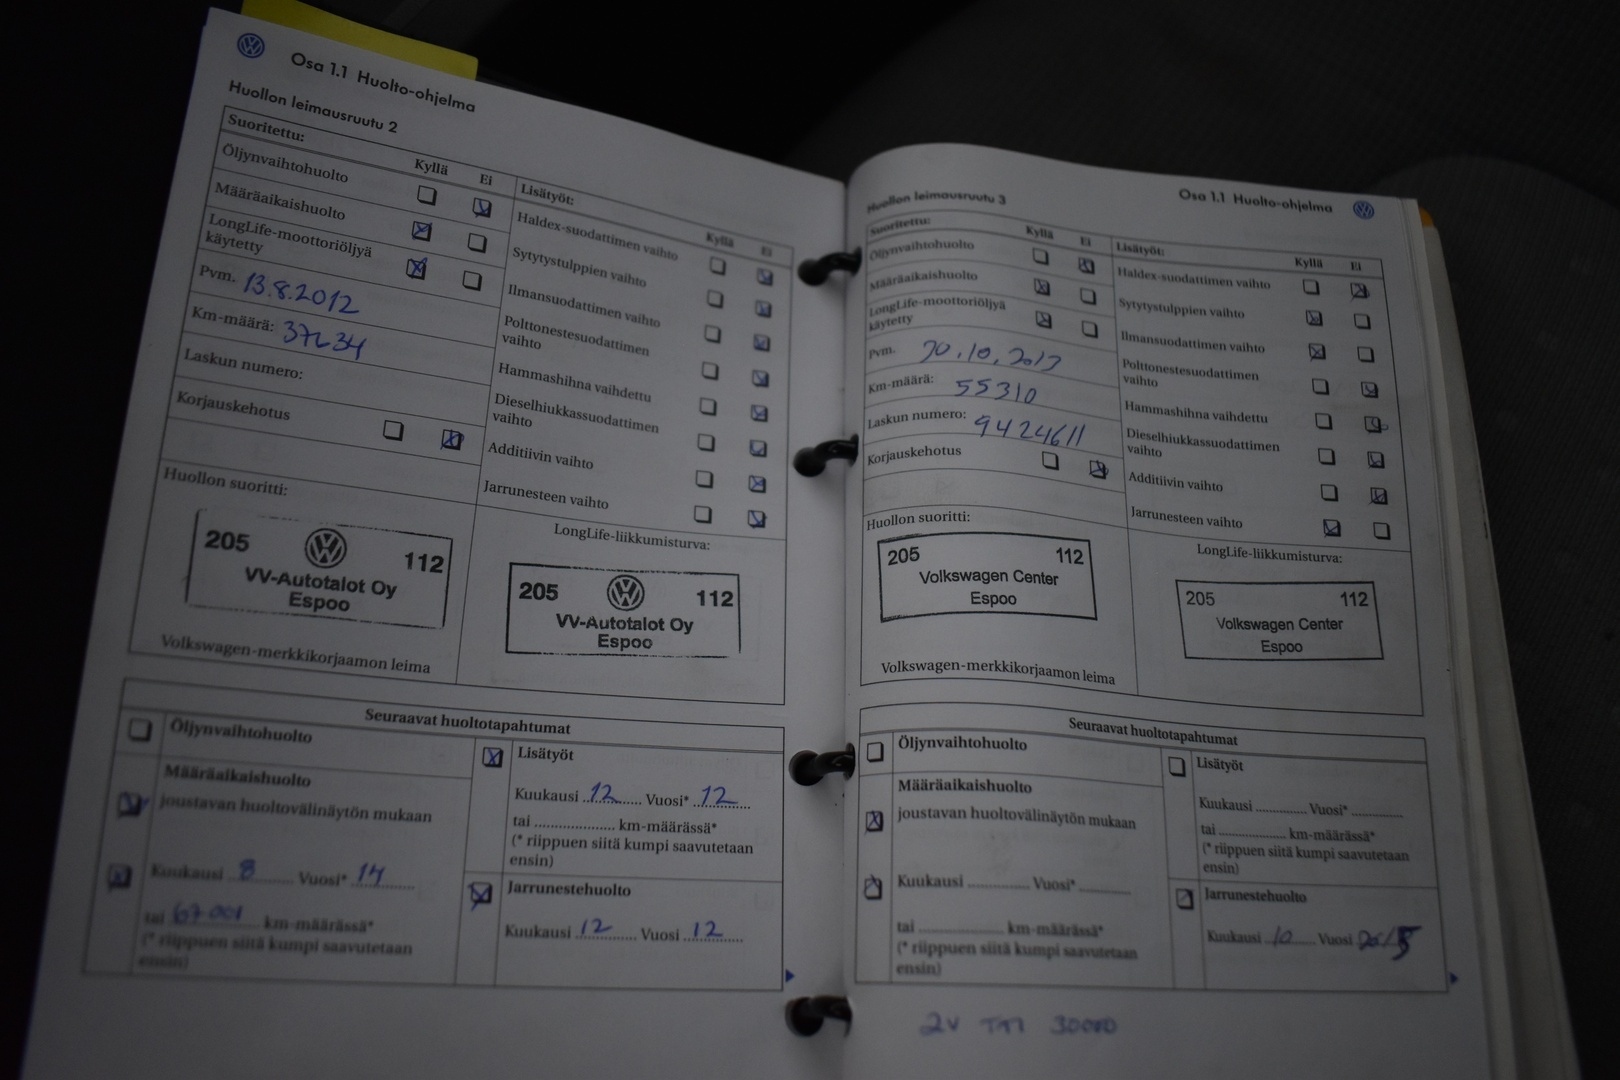 Osa 1.1 Huolto-ohjelma
Huollon leimausruutu 2
Suoritettu:
Kyllä Ei
Öljynvaihtohuolto
Määräaikaishuolto
LongLife-moottoriöljyä
käytetty
Pvm. 13.8.2012
Km-määrä: 37634
Laskun numero:
Korjauskehotus
Lisätyöt:
Kyllä Ei
Haldex-suodattimen vaihto
Sytytystulppien vaihto
Ilmansuodattimen vaihto
Polttonestesuodattimen
vaihto
Hammashihna vaihdettu
Dieselhiukkassuodattimen
vaihto
Additiivin vaihto
Jarrunesteen vaihto
Huollon suoritti:
205 112
VV-Autotalot Oy
Espoo
Volkswagen-merkkikorjaamon leima
LongLife-liikkumisturva:
205 112
VV-Autotalot Oy
Espoo
Seuraavat huoltotapahtumat
Öljynvaihtohuolto
Määräaikaishuolto
joustavan huoltovälinäytön mukaan
Kuukausi 8 Vuosi* 14
tai 67 001 km-määrässä*
(* riippuen siitä kumpi saavutetaan
ensin)
Lisätyöt
Kuukausi 12 Vuosi* 12
tai .................... km-määrässä*
(* riippuen siitä kumpi saavutetaan
ensin)
Jarrunestehuolto
Kuukausi 12 Vuosi 12
Osa 1.1 Huolto-ohjelma
Huollon leimausruutu 3
Suoritettu:
Kyllä Ei
Öljynvaihtohuolto
Määräaikaishuolto
LongLife-moottoriöljyä
käytetty
Pvm. 30.10.2013
Km-määrä: 55310
Laskun numero: 9424611
Korjauskehotus
Lisätyöt:
Kyllä Ei
Haldex-suodattimen vaihto
Sytytystulppien vaihto
Ilmansuodattimen vaihto
Polttonestesuodattimen
vaihto
Hammashihna vaihdettu
Dieselhiukkassuodattimen
vaihto
Additiivin vaihto
Jarrunesteen vaihto
Huollon suoritti:
205 112
Volkswagen Center
Espoo
Volkswagen-merkkikorjaamon leima
LongLife-liikkumisturva:
205 112
Volkswagen Center
Espoo
Seuraavat huoltotapahtumat
Öljynvaihtohuolto
Määräaikaishuolto
joustavan huoltovälinäytön mukaan
Kuukausi ............... Vuosi* ............
tai .................... km-määrässä*
(* riippuen siitä kumpi saavutetaan
ensin)
Lisätyöt
Kuukausi ............. Vuosi* .............
tai ................. km-määrässä*
(* riippuen siitä kumpi saavutetaan
ensin)
Jarrunestehuolto
Kuukausi 10 Vuosi 2015
2V TAI 30000